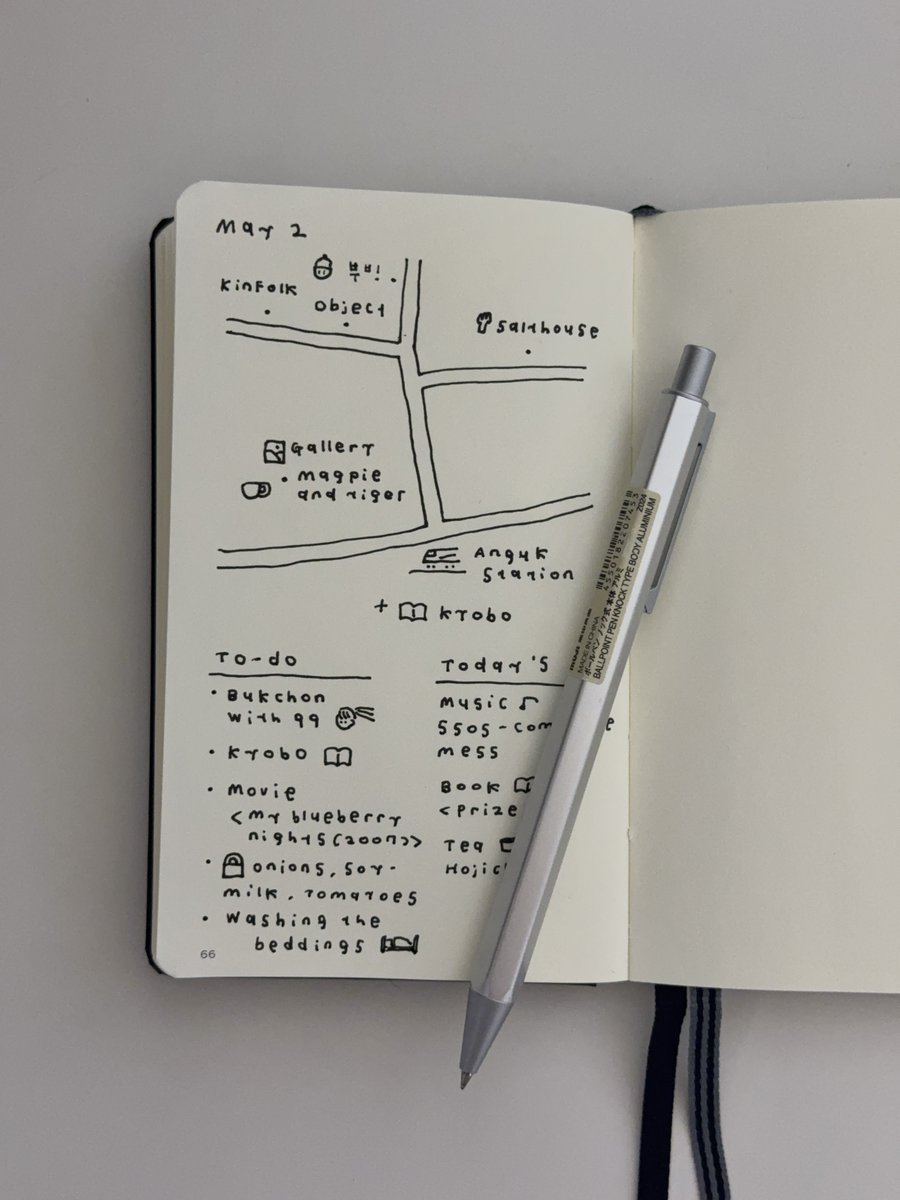 May 2
부빈
Kinfolk
object
salthouse
Gallery
magpie
and tiger
Anguk
Station
+ kyobo
To-do
• Bukchon
with gg
• kyobo
• movie
<my blueberry
nights(2007)>
• onions, soy-
milk, tomatoes
• washing the
beddings
Today's
music
5505-com
mess
Book
<prize
Tea
Hojic
66
MADE IN CHINA
ボールペン ノック式 本体アルミ
BALLPOINT PEN KNOCK TYPE BODY ALUMINIUM